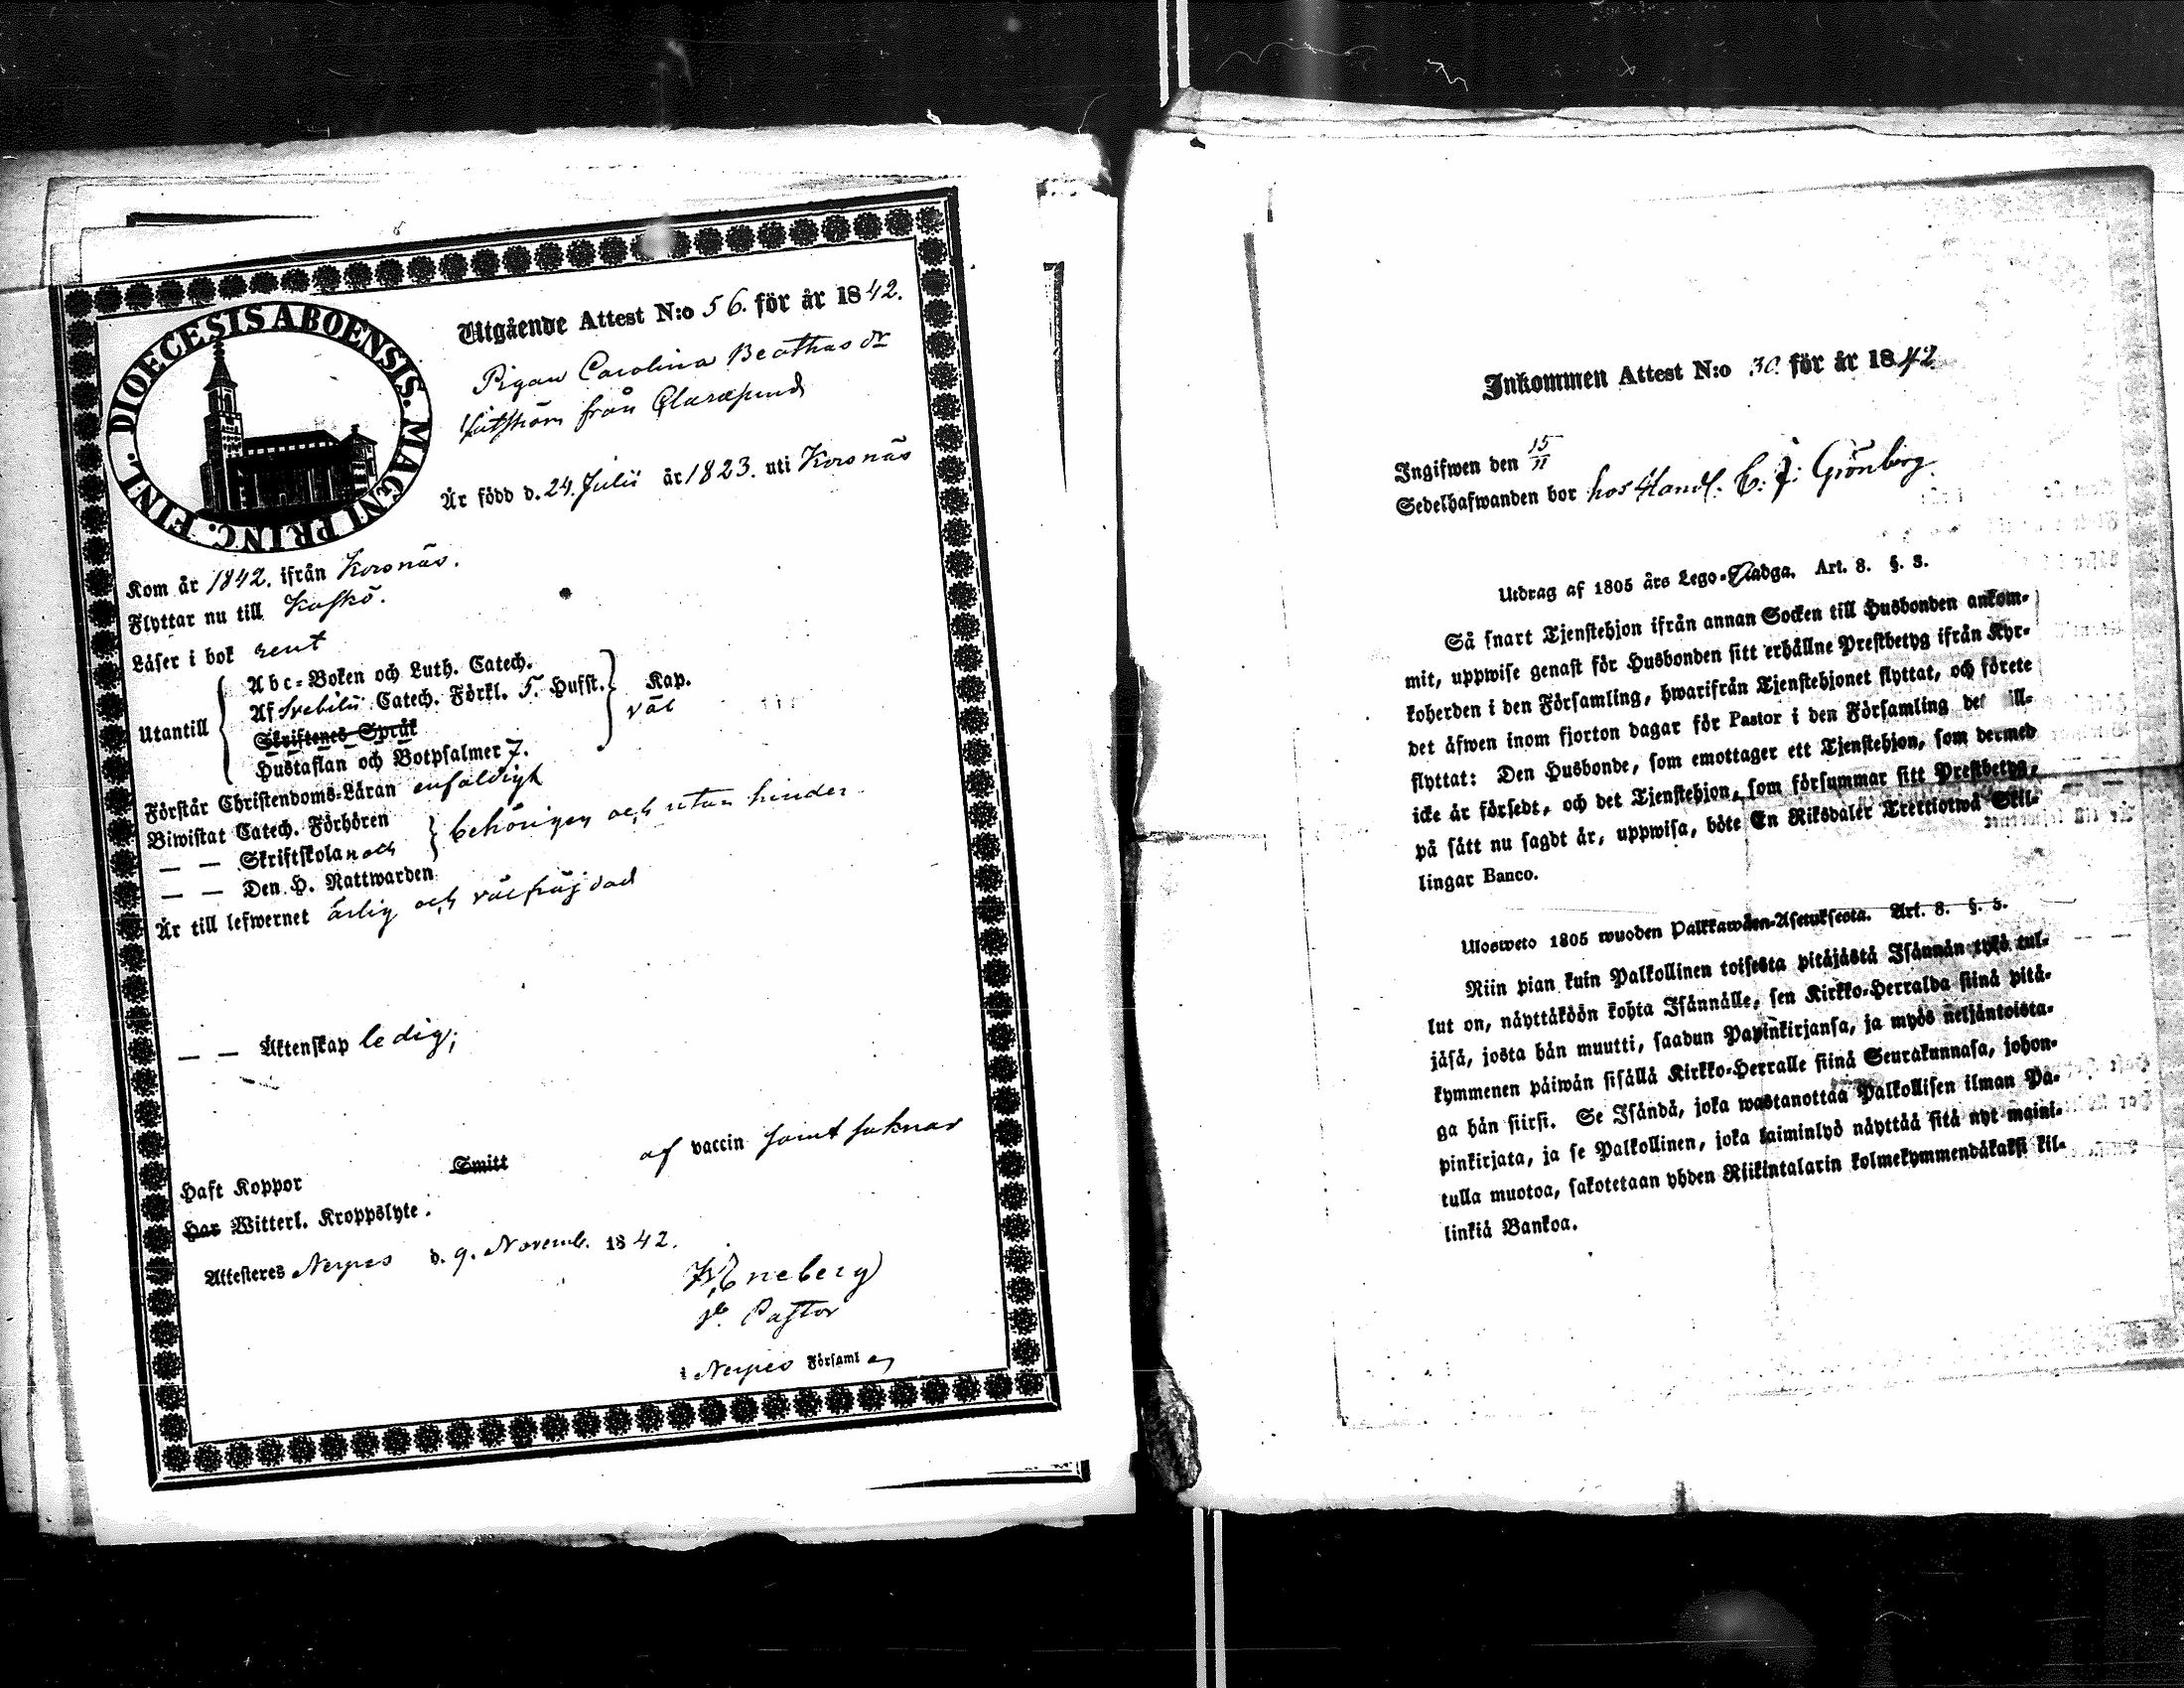 DIOECESIS ABOENSIS. MAGNI PRINC. FINL.
Utgående Attest N:o 56. för år 1842.
Pigan Carolina Beathas dr
från
Är född d. 24. Julii år 1823. uti Korsnäs
Kom år 1842. ifrån Korsnäs.
Flyttar nu till Kaskö.
Läser i bok rent
Utantill
Abc-Boken och Luth. Catech.
Af Svebilii Catech. Förkl. 5. Hufst. Kap.
Skriftenes Språk väl
Hustaflan och Botpsalmer 7.
Förstår Christendoms-Läran enfaldigt
Biwistat Catech. Förhören
— — Skriftskolan och behörigen och utan hinder
— — Den H. Nattwarden
Är till lefwernet ärlig och välfräjdad
— — Äktenskap ledig;
Haft Koppor Smitt af vaccin samt saknar
Har Witterl. Kroppslyte.
Attesteres Nerpes d. 9. Novemb. 1842.
Eneberg
Pastor
i Nerpes Församl
Inkommen Attest N:o 30 för år 1842
Ingifwen den 15/11
Sedelhafwanden bor hos Handl: C: J: Grönberg
Utdrag af 1805 års Lego-Stadga. Art. 8. §. 3.
Så snart Tjenstehjon ifrån annan Socken till Husbonden ankom-
mit, uppwise genast för Husbonden sitt erhållne Prestbetyg ifrån Kyr-
koherden i den Församling, hwarifrån Tjenstehjonet flyttat, och förete
det äfwen inom fjorton dagar för Pastor i den Församling det ill-
flyttat: Den Husbonde, som emottager ett Tjenstehjon, som dermed
icke är försedt, och det Tjenstehjon, som försummar sitt Prestbetyg,
på sätt nu sagdt är, uppwisa, böte En Riksdaler Trettiotwå Skil-
lingar Banco.
Ulosweto 1805 wuoden Palkkawäen-Asetuksesta. Art. 8. §. 3.
Niin pian kuin Palkollinen toisesta pitäjästä Isännän tykö tul-
lut on, näyttäköön kohta Isännälle, sen Kirkko-Herralda siinä pitä-
jäsä, josta hän muutti, saadun Papinkirjansa, ja myös neljäntoista-
kymmenen päiwän sisällä Kirkko-Herralle siinä Seurakunnasa, johon-
ga hän siirsi. Se Isändä, joka wastanottaa Palkollisen ilman Pa-
pinkirjata, ja se Palkollinen, joka laiminlyö näyttää sitä nyt maini-
tulla muotoa, sakotetaan yhden Riikintalarin kolmekymmendäkaksi kil-
linkiä Bankoa.